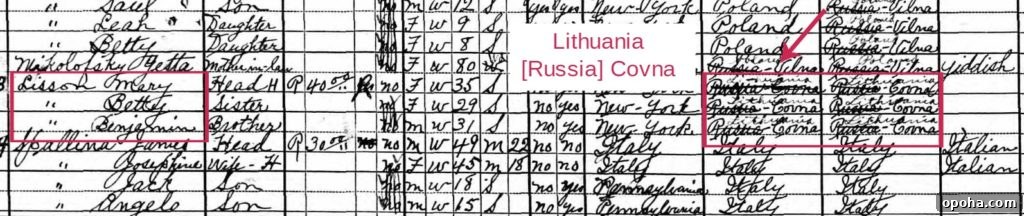 " Saul Son no m W 12 S yes yes New-York Poland Russia-Vilna
" Leah Daughter no F W 9 S Poland Poland Russia-Vilna
" Betty Daughter no F W 8 S Poland Poland Russia-Vilna
Lithuania
[Russia] Covna
Nikolofsky Yetta Mother-in-law no F W 80 Russia-Vilna Russia-Vilna Yiddish
Lisson Mary Head H R 40.00 no F W 35 S Lithuania Russia-Covna Lithuania Russia-Covna
" Betty Sister no F W 29 S no yes New-York Lithuania Russia-Covna Lithuania Russia-Covna
" Benjamin Brother no m W 31 S no yes New-York Lithuania Russia-Covna Lithuania Russia-Covna
Spallina James Head R 30.00 no m W 49 m 22 no no Italy Italy Italy Italian
" Josephine Wife-H no F W 45 m 18 no no Italy Italy Italy Italian
" Jack Son no m W 18 S no yes Pennsylvania Italy Italy
" Angelo Son no m W 15 S no yes Pennsylvania Italy Italy
opoha.com